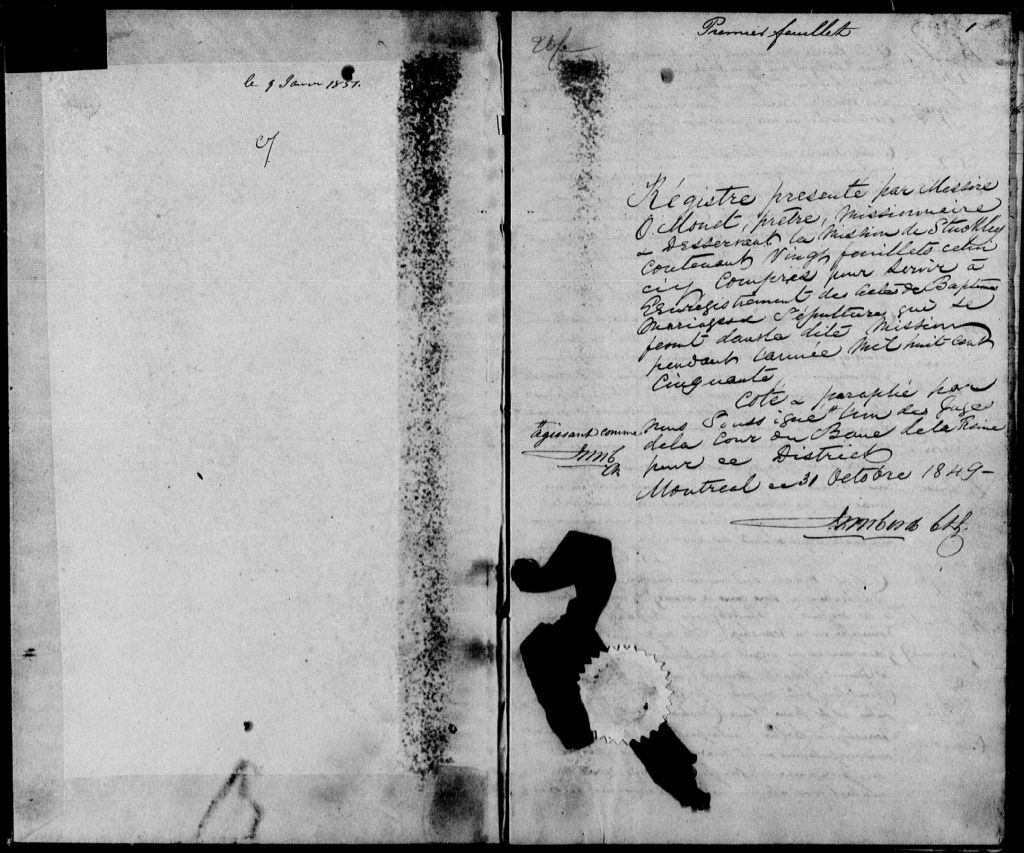 le 9 Janv 1851.
Premier feuillet
1
Régistre présenté par Messire
O. Monet, prêtre, Missionnaire
& Desservant la Mission de Stuckley
contenant Vingt feuillets celui
ciy Compris pour servir à
l'Enregistrement des actes de Baptême
Mariages & Sépulture qui se
feront dans la dite Mission
pendant l'année Mil huit cent
Cinquante
Coté & paraphé par
nous Soussigné # l'un des Juge
de la Cour du Banc de la Reine
pour ce District
Montreal ce 31 Octobre 1849 -
# agissant comme